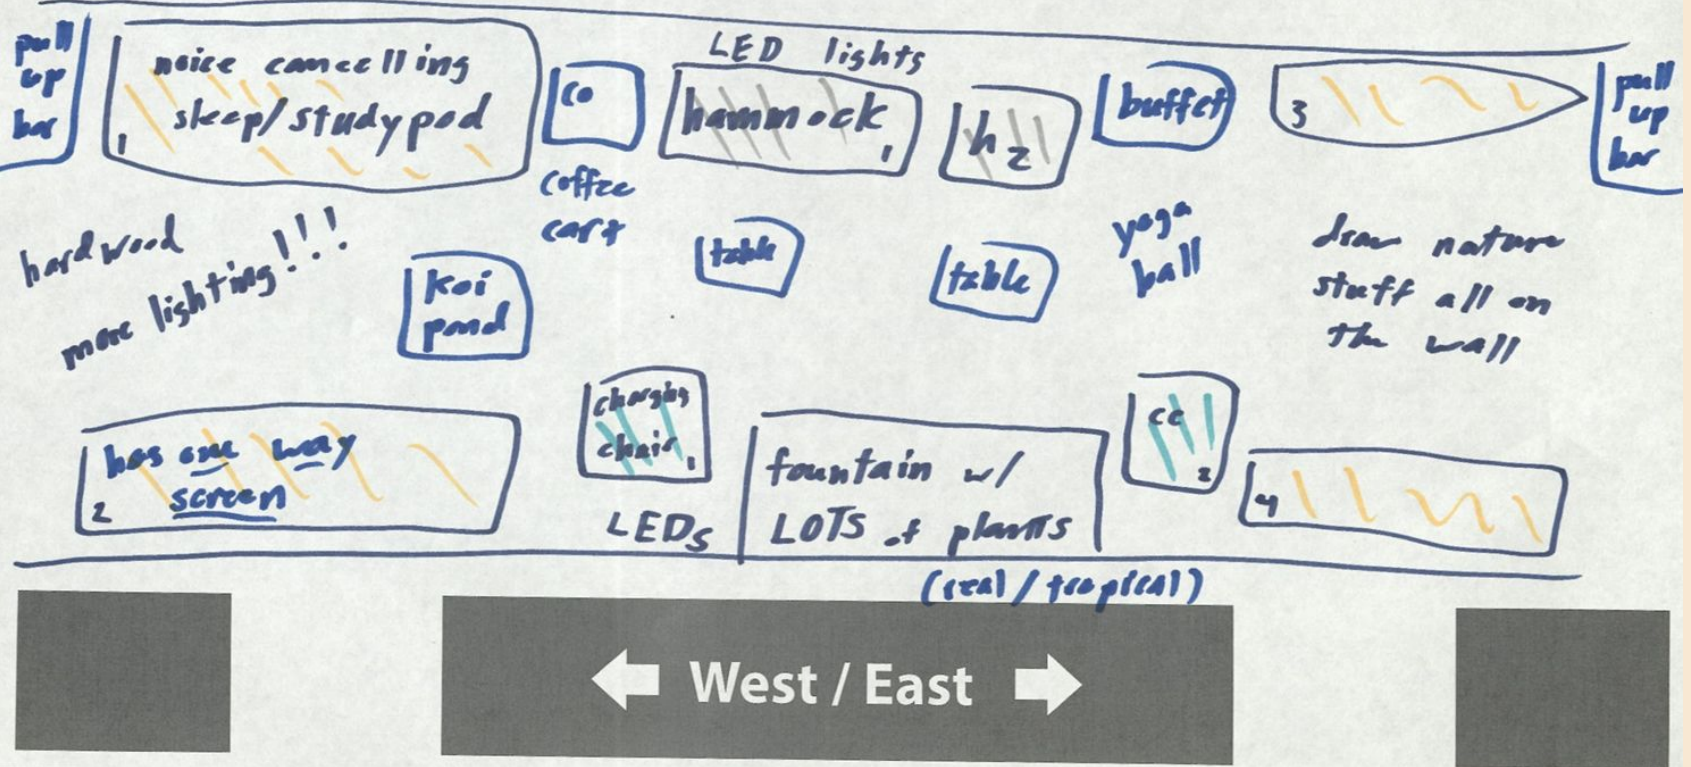 pull
up
bar
noise cancelling
sleep/study pod
1
co
coffee
cart
LED lights
hammock
1
h
2
buffet
3
pull
up
bar
hardwood
more lighting!!!
koi
pond
table
table
yoga
ball
draw nature
stuff all on
the wall
has one way
screen
2
charging
chair
1
LEDs
fountain w/
LOTS of plants
(real/tropical)
cc
2
4
West / East